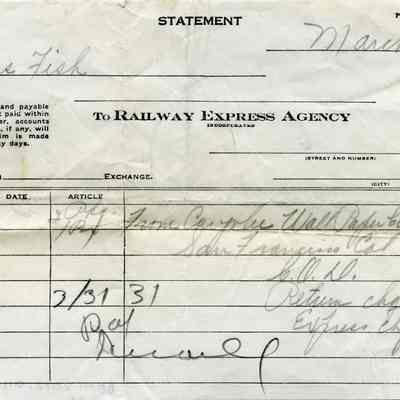 STATEMENT
March
s Fish
and payable
t paid within
er, accounts
, if any, will
im is made
y days.
To RAILWAY EXPRESS AGENCY
INCORPORATED
(STREET AND NUMBER)
EXCHANGE.
(CITY)
DATE
ARTICLE
From Wall Paper Co
San Francisco Cal
C.O.D.
3/31 31 Return chg
Express ch